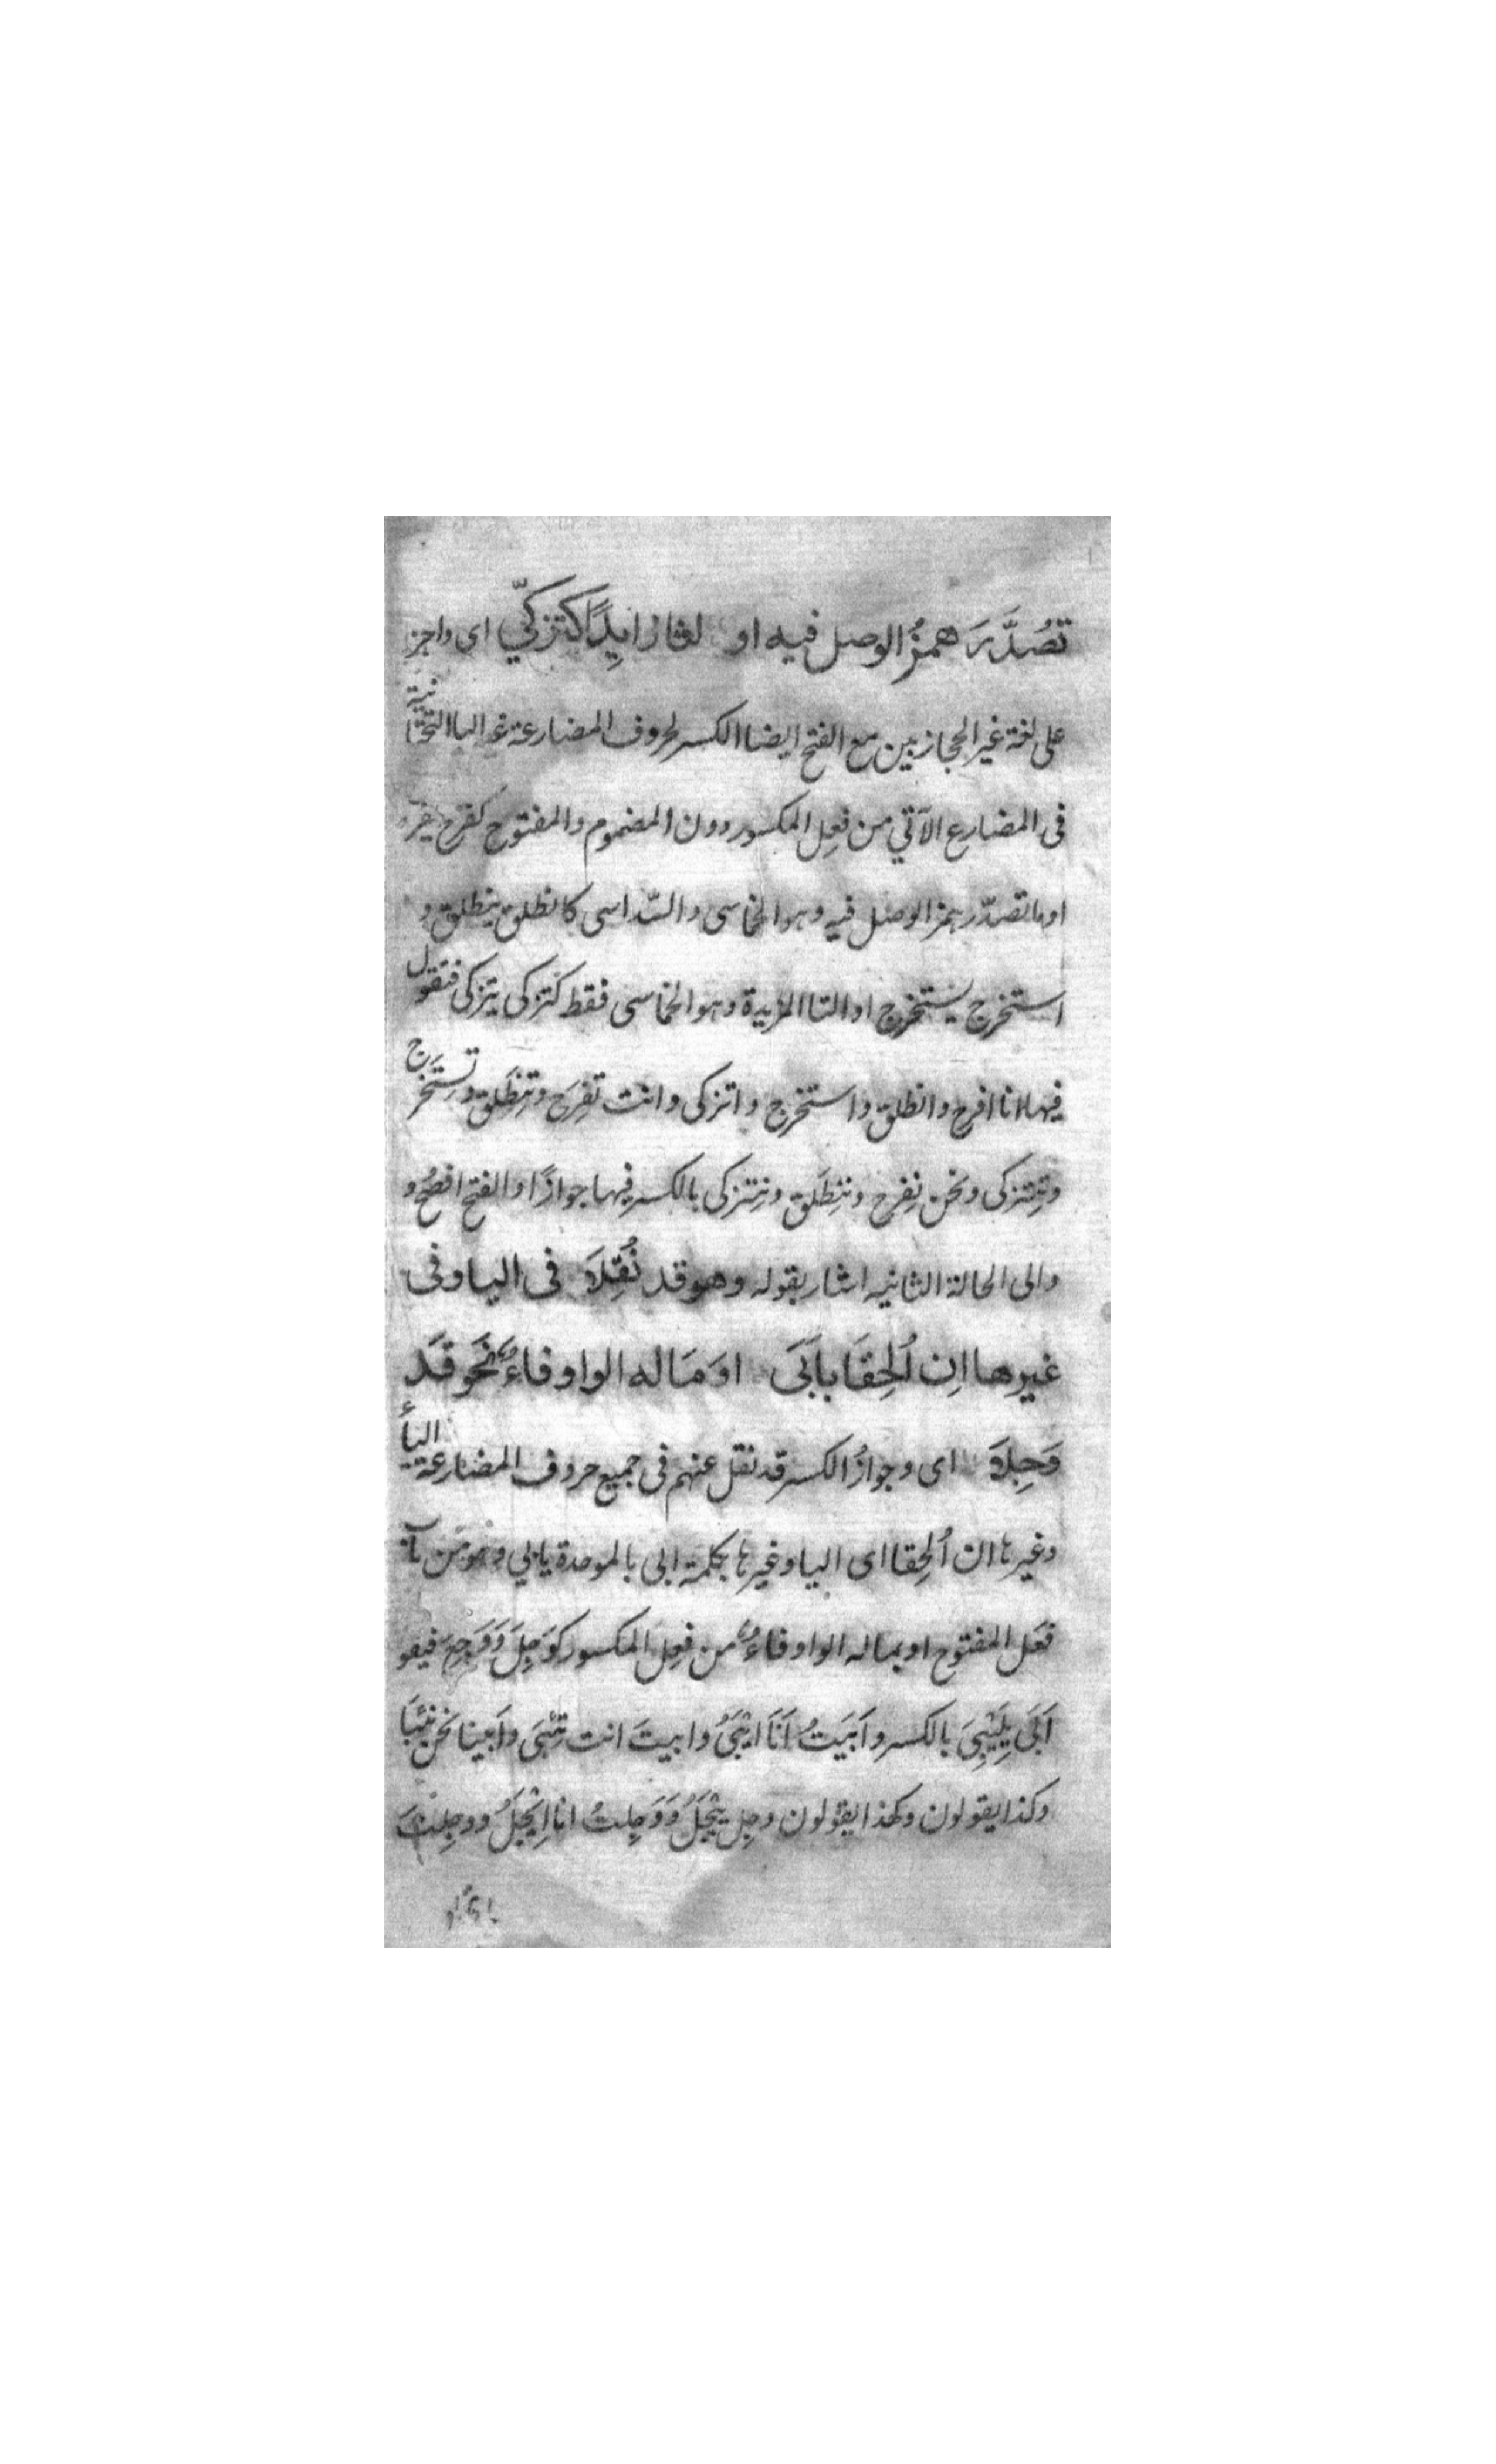 تُصُدَّرَ همزُ الوصل فيه او زايدًا كتزكّي اى واجز
على لغة غير الحجازيين مع الفتح ايضا الكسر لحروف المضارعة غير اليا التحتانية
فى المضارع الآتي من فعِل المكسور دون المضموم والمفتوح كفرح يفرح
او ما تصدّر همز الوصل فيه وهو الخماسى والسّداسى كانطلق ينطلق و
استخرج يستخرج او التا المزيدة وهو الخماسى فقط كتزكى يتزكى فتقول
فيها انا افرح وانطلق واستخرج واتزكى وانت تِفرَح وتِنطَلق وتِستَخرج
وتِتزكى ونحن نِفرح ونِنطَلق ونِتزكى بالكسر فيها جوازًا والفتح افصحُ و
والى الحالة الثانيه اشار بقوله وهو قد نُقِلَا فى اليا وفى
غيرها اِن اُلحِقَا بابَى اوَ مَا له الواو فاءً نَحوَ قَد
وَجِلَا اى وجوازُ الكسر قد نقل عنهم فى جميع حروف المضارعة اليأء
وغيرها ان اُلحِقا اى اليا وغيرها بكلمة ابى بالموحدة يابي وهو من
فعَل المفتوح او بماله الواو فاءً من فعِل المكسور كوَجِلَ وَوَجِعَ فيقو
اَبَى يِيبىَ بالكسر واَبَيتُ اَنَا ايبَىُ وابيتَ انت تِئبَى واَبينا نحن نِئبَا
وكذا يقولون وكهذا يقولون وجِل يِيجَلُ وَوَجِلتُ انا اِيجَلُ ووجِلتَ